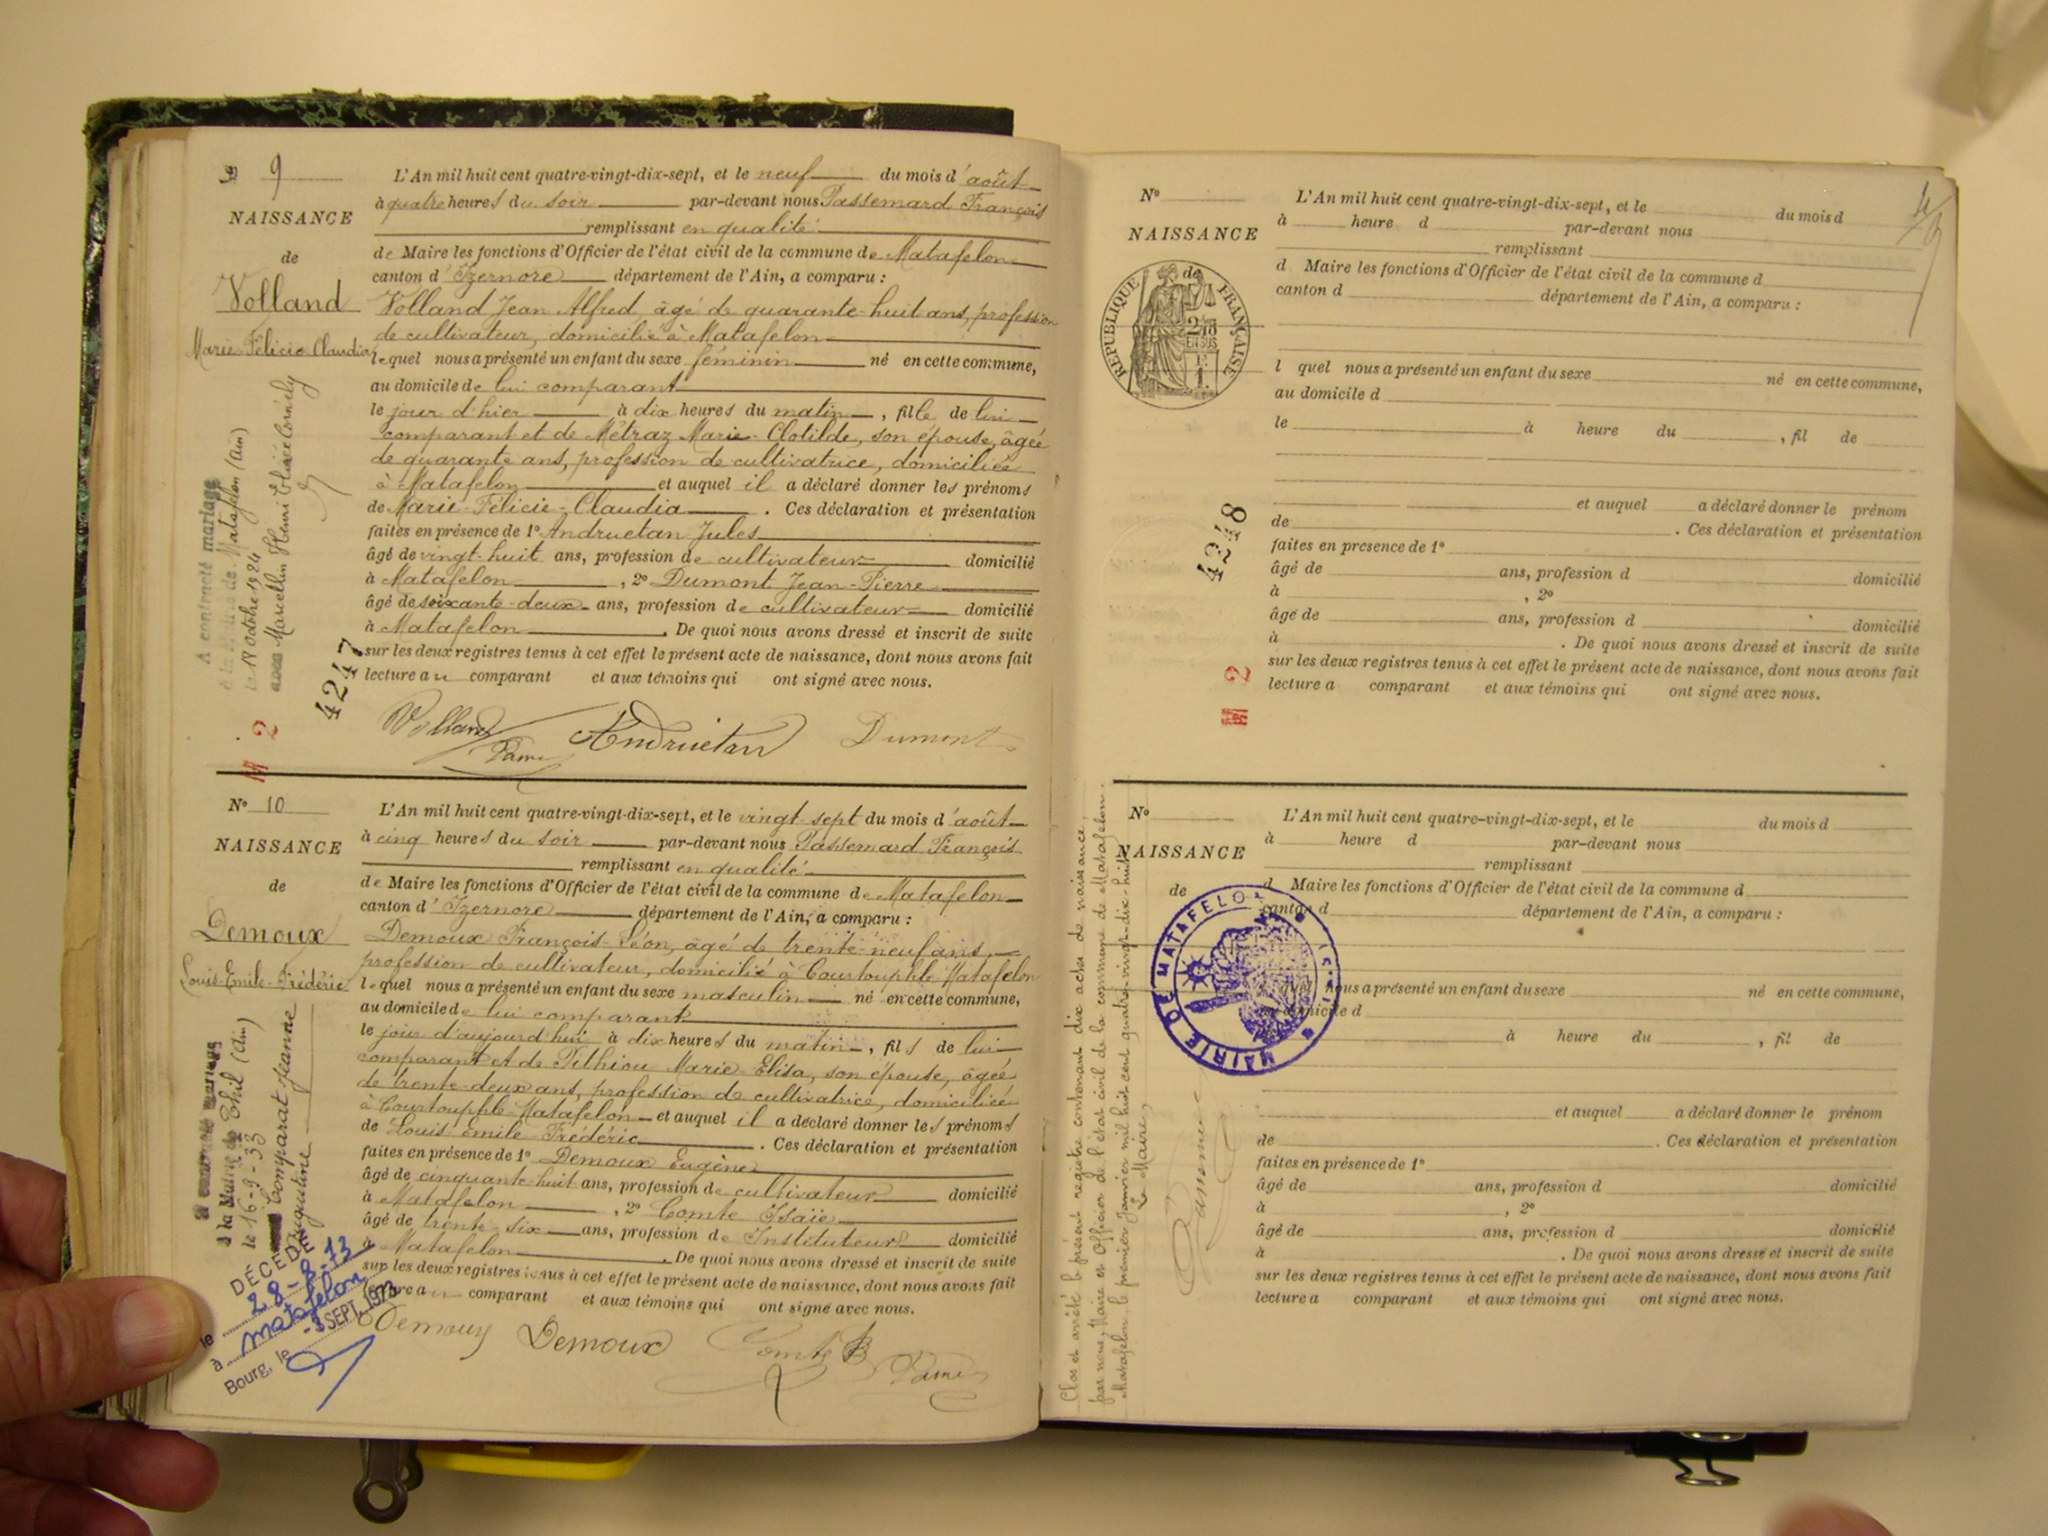 N° 9
NAISSANCE
de
Volland
Marie-Félicie-Claudia
A contracté mariage
à la Mairie de Matafelon (Ain)
le 18 Octobre 1924
avec Marcellin Henri Elisée Cornély
M 2
4247
L'An mil huit cent quatre-vingt-dix-sept, et le neuf du mois d'août
à quatre heures du soir par-devant nous Passemard François
remplissant en qualité
de Maire les fonctions d'Officier de l'état civil de la commune de Matafelon
canton d'Izernore département de l'Ain, a comparu :
Volland Jean Alfred, âgé de quarante-huit ans, profession
de cultivateur, domicilié à Matafelon
lequel nous a présenté un enfant du sexe féminin né en cette commune,
au domicile de lui comparant
le jour d'hier à dix heures du matin, fille de lui
comparant et de Métraz Marie-Clotilde, son épouse, âgée
de quarante ans, profession de cultivatrice, domiciliée
à Matafelon et auquel il a déclaré donner les prénoms
de Marie-Félicie-Claudia. Ces déclaration et présentation
faites en présence de 1° Andruetan Jules
âgé de vingt-huit ans, profession de cultivateur domicilié
à Matafelon, 2° Dumont Jean-Pierre
âgé de soixante-deux ans, profession de cultivateur domicilié
à Matafelon. De quoi nous avons dressé et inscrit de suite
sur les deux registres tenus à cet effet le présent acte de naissance, dont nous avons fait
lecture au comparant et aux témoins qui ont signé avec nous.
Volland Andruetan Dumont
N° 10
NAISSANCE
de
Demoux
Louis-Emile-Frédéric
A contracté mariage
à la Mairie de Thil (Ain)
le 16-9-33
Comparat Jeanne
Augustine
DÉCÉDÉ
le 28-8-73
à Matafelon
Bourg, le SEPT. 1973
L'An mil huit cent quatre-vingt-dix-sept, et le vingt-sept du mois d'août
à cinq heures du soir par-devant nous Passemard François
remplissant en qualité
de Maire les fonctions d'Officier de l'état civil de la commune de Matafelon
canton d'Izernore département de l'Ain, a comparu :
Demoux François-Léon, âgé de trente-neuf ans,
profession de cultivateur, domicilié à Courtouphle-Matafelon
lequel nous a présenté un enfant du sexe masculin né en cette commune,
au domicile de lui comparant
le jour d'aujourd'hui à dix heures du matin, fils de lui
comparant et de Pithiou Marie Elisa, son épouse, âgée
de trente-deux ans, profession de cultivatrice, domiciliée
à Courtouphle-Matafelon et auquel il a déclaré donner les prénoms
de Louis Emile Frédéric. Ces déclaration et présentation
faites en présence de 1° Demoux Eugène
âgé de cinquante-huit ans, profession de cultivateur domicilié
à Matafelon, 2° Comte Isaïe
âgé de trente-six ans, profession de Instituteur domicilié
à Matafelon. De quoi nous avons dressé et inscrit de suite
sur les deux registres tenus à cet effet le présent acte de naissance, dont nous avons fait
lecture au comparant et aux témoins qui ont signé avec nous.
Demoux Demoux Comte
N°
NAISSANCE
de
RÉPUBLIQUE FRANÇAISE
4248
2
L'An mil huit cent quatre-vingt-dix-sept, et le du mois d
à heure d par-devant nous
remplissant
d Maire les fonctions d'Officier de l'état civil de la commune d
canton d département de l'Ain, a comparu :
l quel nous a présenté un enfant du sexe né en cette commune,
au domicile d
le à heure du , fil de
et auquel a déclaré donner le prénom
de . Ces déclaration et présentation
faites en présence de 1°
âgé de ans, profession d domicilié
à , 2°
âgé de ans, profession d domicilié
à . De quoi nous avons dressé et inscrit de suite
sur les deux registres tenus à cet effet le présent acte de naissance, dont nous avons fait
lecture a comparant et aux témoins qui ont signé avec nous.
Clos et arrêté le présent registre contenant dix actes de naissance,
par nous, Maire et Officier de l'état civil de la commune de Matafelon.
Matafelon, le premier Janvier mil huit cent quatre-vingt-dix-huit.
Le Maire,
N°
NAISSANCE
de
MAIRIE DE MATAFELON (AIN)
L'An mil huit cent quatre-vingt-dix-sept, et le du mois d
à heure d par-devant nous
remplissant
d Maire les fonctions d'Officier de l'état civil de la commune d
canton d département de l'Ain, a comparu :
quel nous a présenté un enfant du sexe né en cette commune,
au domicile d
à heure du , fil de
et auquel a déclaré donner le prénom
de . Ces déclaration et présentation
faites en présence de 1°
âgé de ans, profession d domicilié
à , 2°
âgé de ans, profession d domicilié
à . De quoi nous avons dressé et inscrit de suite
sur les deux registres tenus à cet effet le présent acte de naissance, dont nous avons fait
lecture a comparant et aux témoins qui ont signé avec nous.